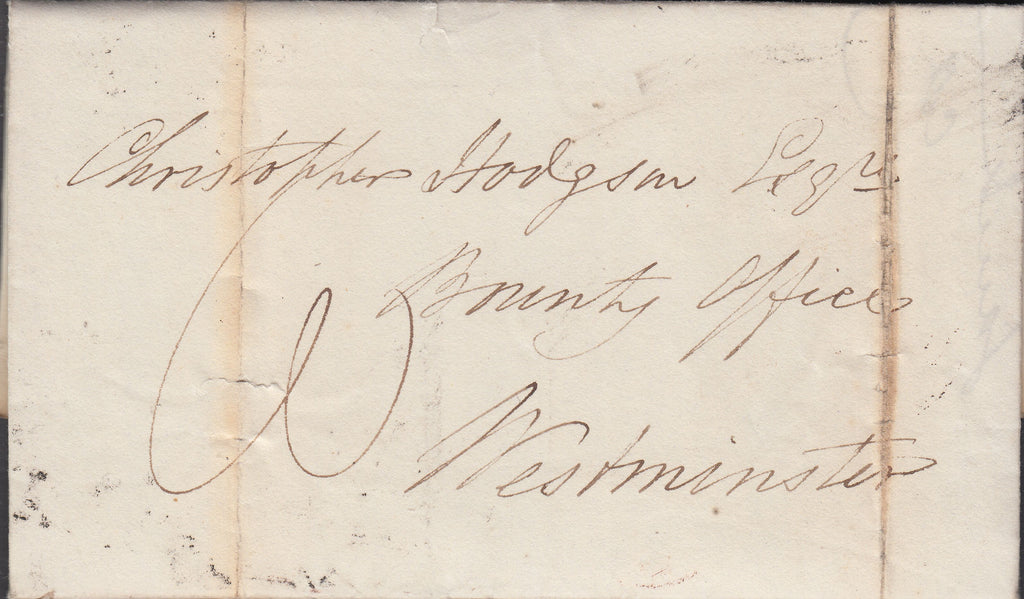 Christopher Hodgson Esqre
Bounty Office
Westminster